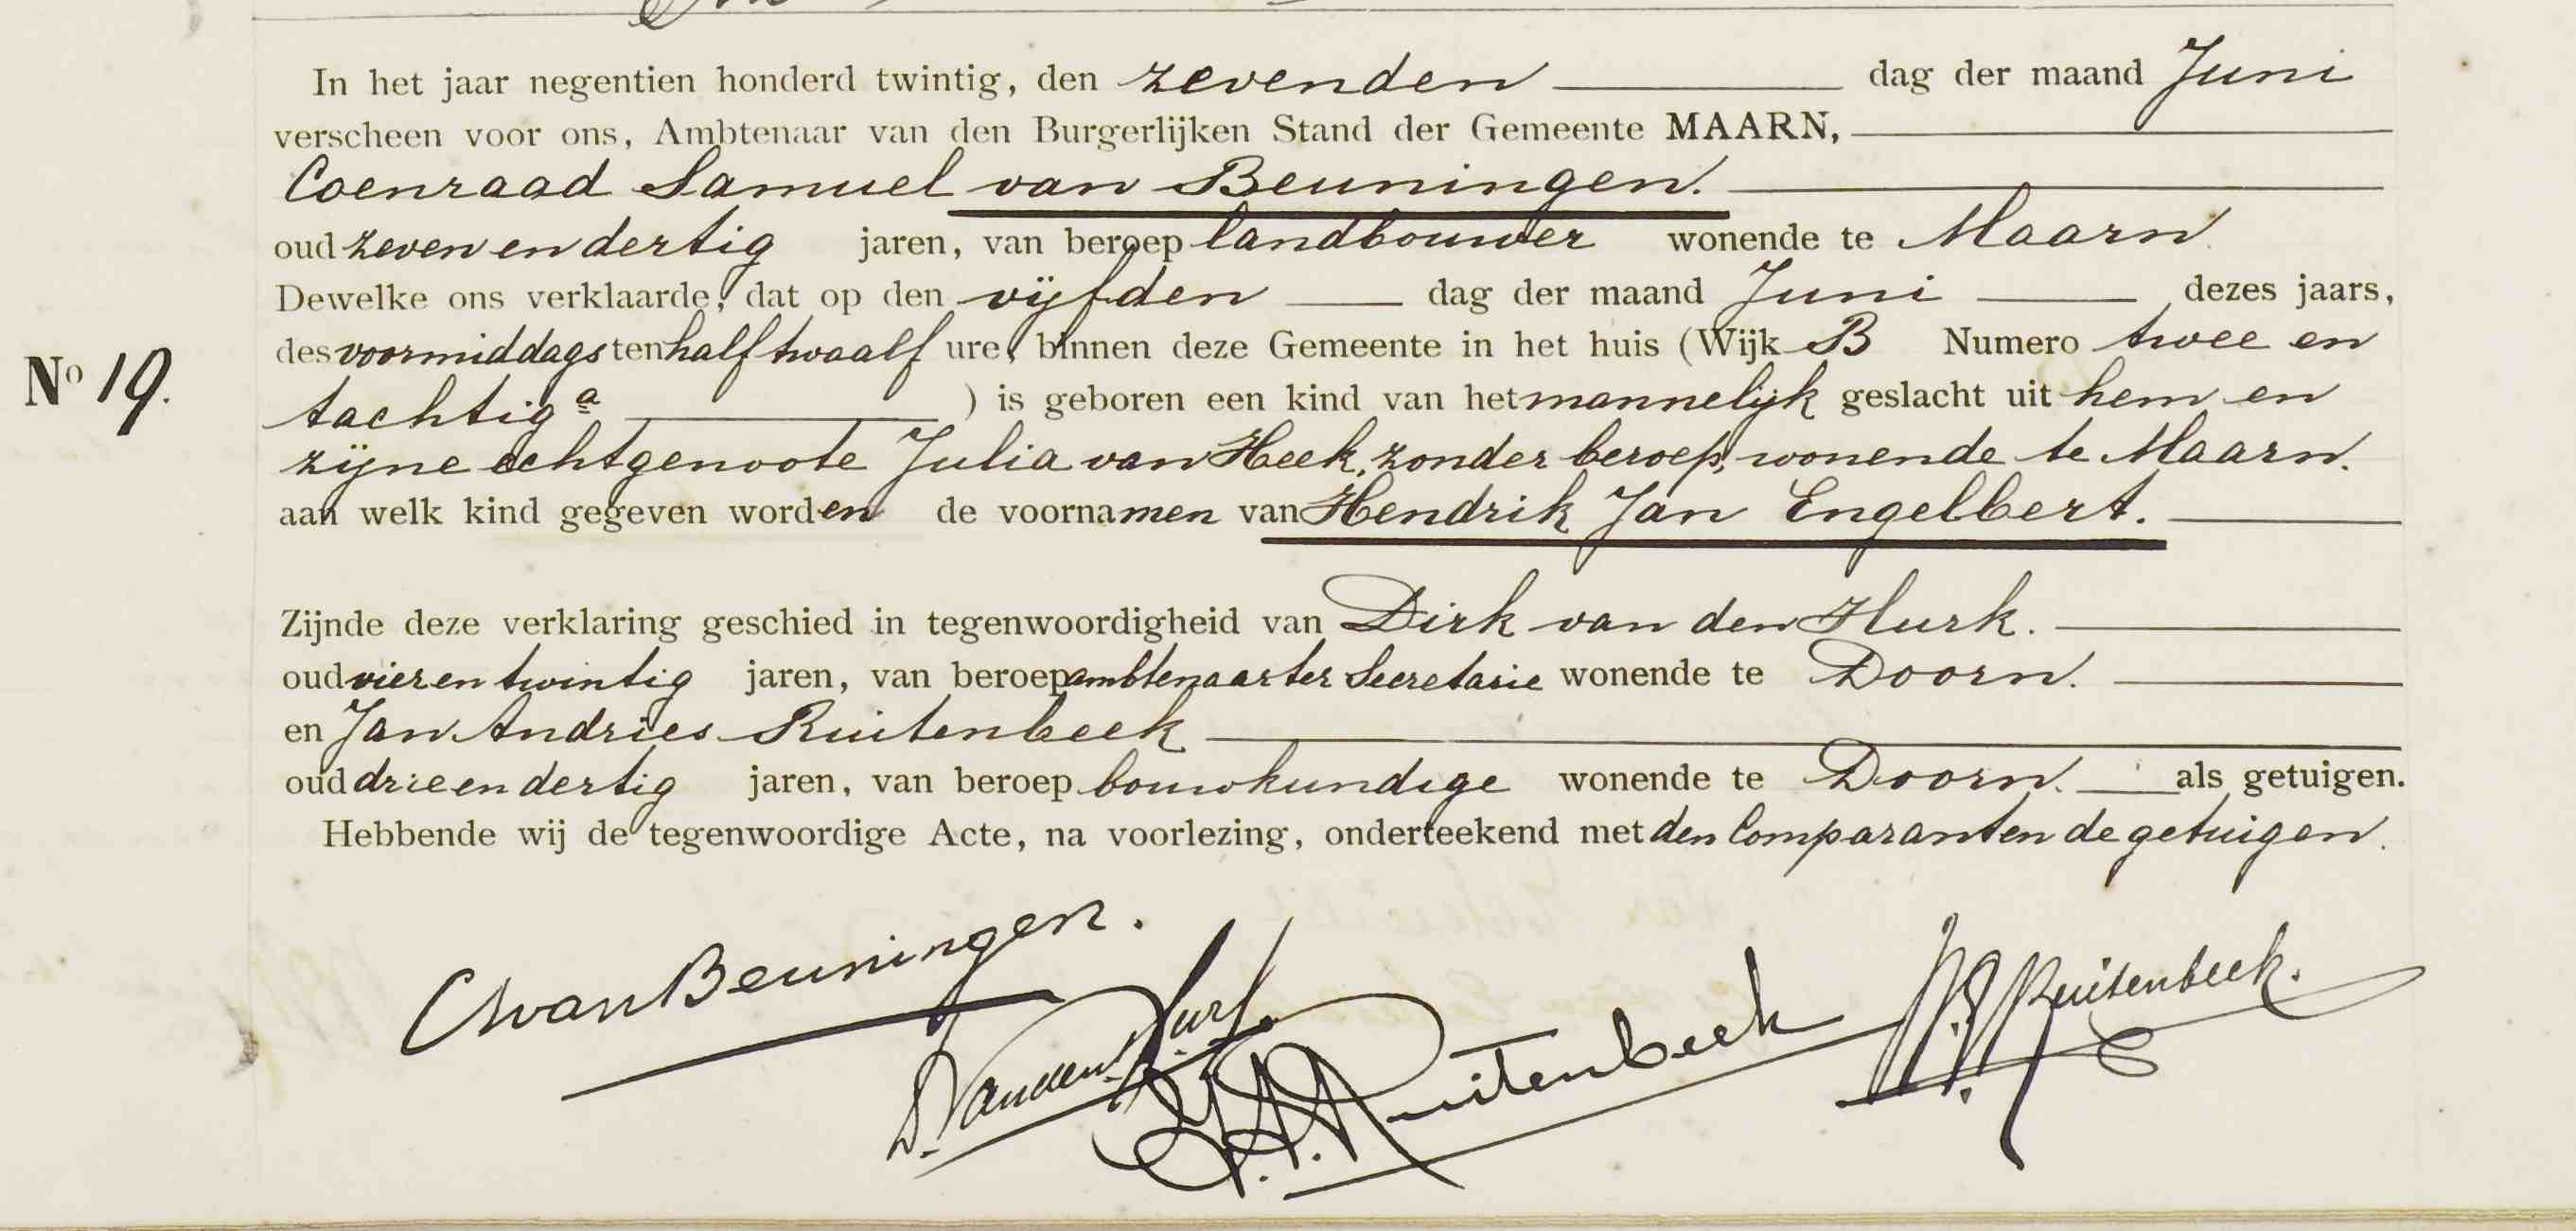 In het jaar negentien honderd twintig, den zevenden dag der maand Juni
verscheen voor ons, Ambtenaar van den Burgerlijken Stand der Gemeente MAARN,
Coenraad Samuel van Beuningen.
oud zeven en dertig jaren, van beroep landbouwer wonende te Maarn
Dewelke ons verklaarde, dat op den vijfden dag der maand Juni dezes jaars,
des voormiddags ten half twaalf ure, binnen deze Gemeente in het huis (Wijk B Numero twee en
No 19.
tachtig a ) is geboren een kind van het mannelijk geslacht uit hem en
zijne echtgenoote Julia van Heek, zonder beroep, wonende te Maarn.
aan welk kind gegeven worden de voornamen van Hendrik Jan Engelbert.
Zijnde deze verklaring geschied in tegenwoordigheid van Dirk van den Hurk.
oud vier en twintig jaren, van beroep ambtenaar ter Secretarie wonende te Doorn.
en Jan Andries Ruitenbeek
oud drie en dertig jaren, van beroep bouwkundige wonende te Doorn. als getuigen.
Hebbende wij de tegenwoordige Acte, na voorlezing, onderteekend met den Comparant en de getuigen.
CSvanBeuningen.
D. Vanden Hurk
J.A. Ruitenbeek
Ruitenbeek.